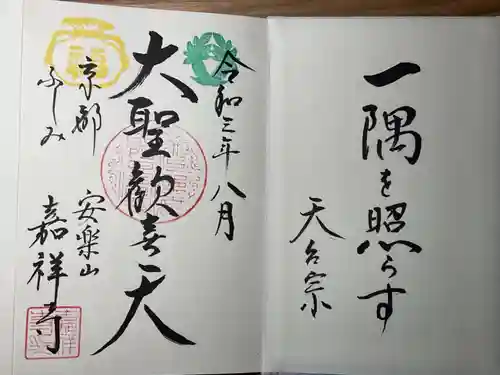 一隅を照らす
天台宗
令和三年八月
大聖歓喜天
京都
ふしみ
安楽山
嘉祥寺